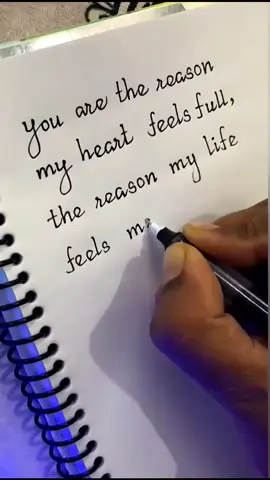 you are the reason
my heart feels full,
the reason my life
feels m